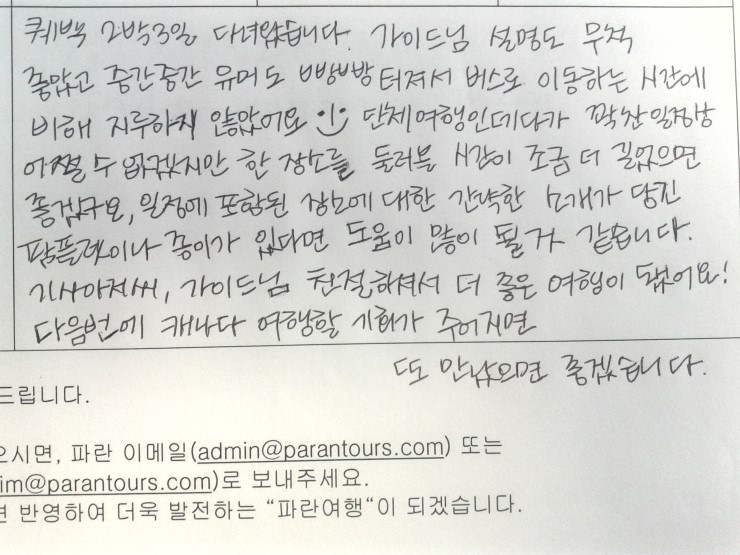 퀘벡 2박3일 다녀왔습니다. 가이드님 설명도 무척
좋았고 중간중간 유머도 빵빵 터져서 버스로 이동하는 시간에
비해 지루하지 않았어요 :) 단체여행인데다가 꽉찬 일정상
어쩔 수 없겠지만 한 장소를 둘러볼 시간이 조금 더 길었으면
좋겠구요, 일정에 포함된 장소에 대한 간략한 소개가 담긴
팜플렛이나 종이가 있다면 도움이 많이 될거 같습니다.
기사아저씨, 가이드님 친절하셔서 더 좋은 여행이 됐어요!
다음번에 캐나다 여행할 기회가 주어지면
또 만났으면 좋겠습니다.
드립니다.
으시면, 파란 이메일(admin@parantours.com) 또는
im@parantours.com)로 보내주세요.
면 반영하여 더욱 발전하는 “파란여행“이 되겠습니다.